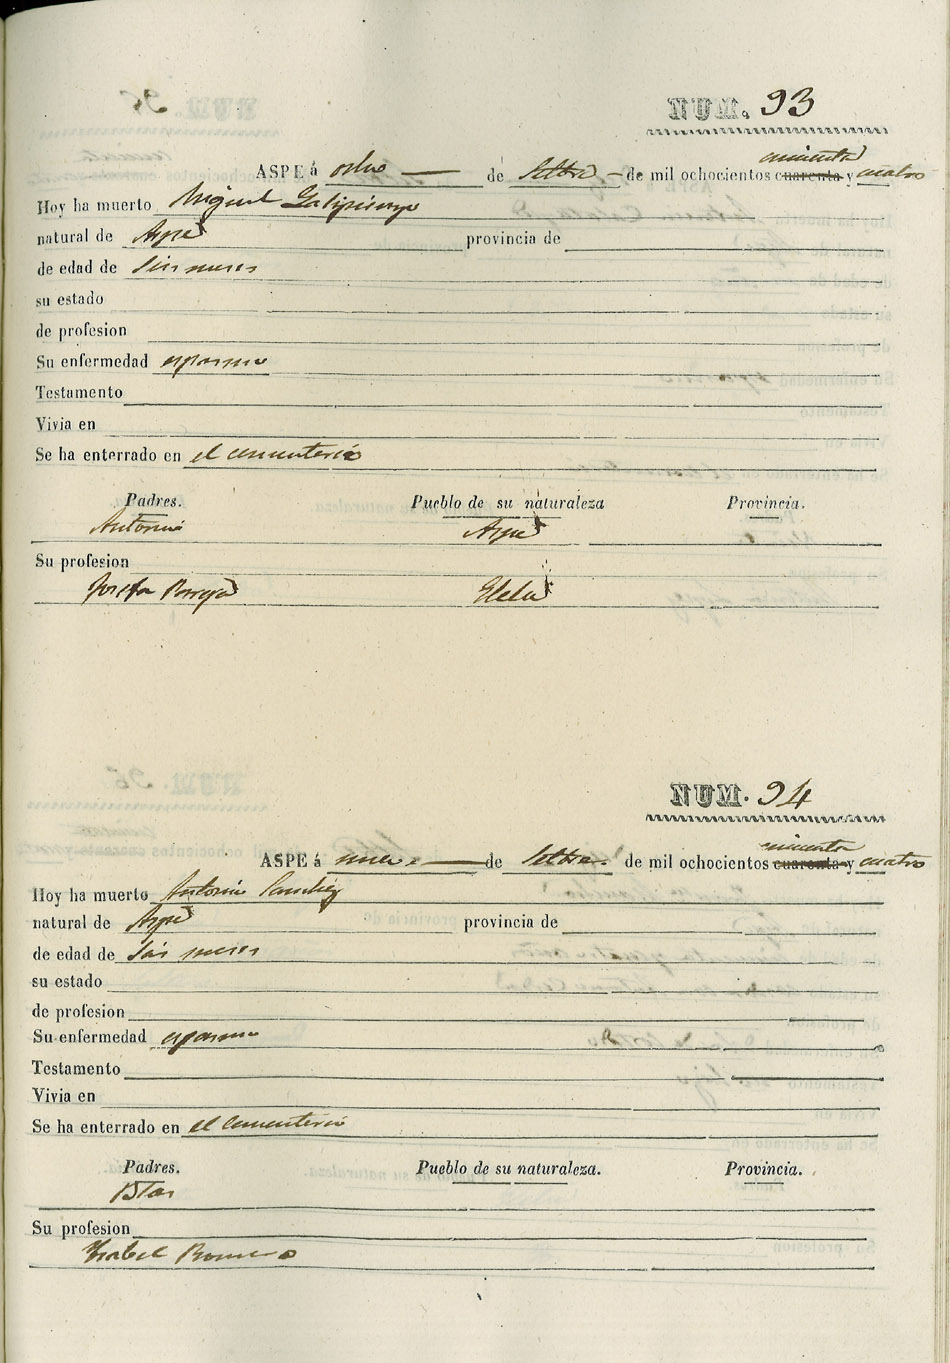 NUM. 93
ASPE á ocho de Settbre de mil ochocientos cuarenta cincuenta y cuatro
Hoy ha muerto Miguel Galipienzo
natural de Aspe provincia de
de edad de seis meses
su estado
de profesion
Su enfermedad espasmo
Testamento
Vivia en
Se ha enterrado en el cementerio
Padres. Pueblo de su naturaleza Provincia.
Antonio Aspe
Su profesion
Josefa Elda
NUM. 94
ASPE á nueve de Settbre de mil ochocientos cuarenta cincuenta y cuatro
Hoy ha muerto Antonio Sanchez
natural de Aspe provincia de
de edad de meses
su estado
de profesion
Su enfermedad espasmo
Testamento
Vivia en
Se ha enterrado en el cementerio
Padres. Pueblo de su naturaleza. Provincia.
Blas
Su profesion
Ysabel Romero